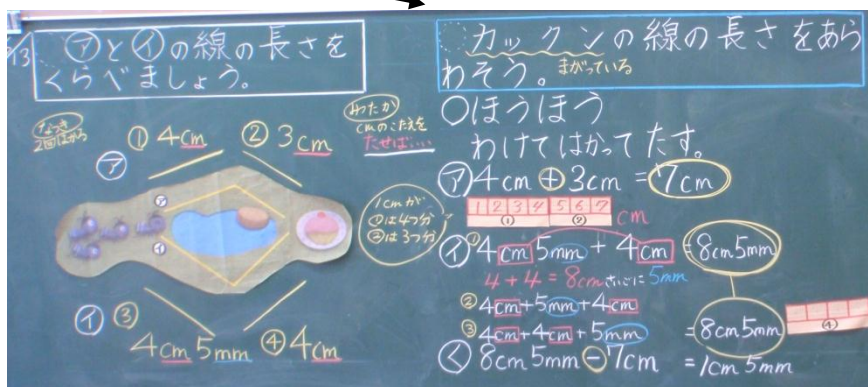 /13
㋐と㋑の線の長さを
くらべましょう。
2回はかる
① 4cm ② 3cm
みつたか
cmのこたえを
たせばいい
㋐
㋐
㋑
1cmが
①は4つ分
②は3つ分
㋑ ③
4cm5mm ④ 4cm
カックンの線の長さをあら
わそう。 まがっている
○ほうほう
わけてはかってたす。
㋐ 4cm + 3cm = 7cm
1 2 3 4 5 6 7 cm
① ②
㋑ ① 4cm5mm + 4cm = 8cm5mm
4+4=8cm さいごに5mm
② 4cm+5mm+4cm
③ 4cm+4cm+5mm = 8cm5mm
④
㋗ 8cm5mm - 7cm = 1cm5mm